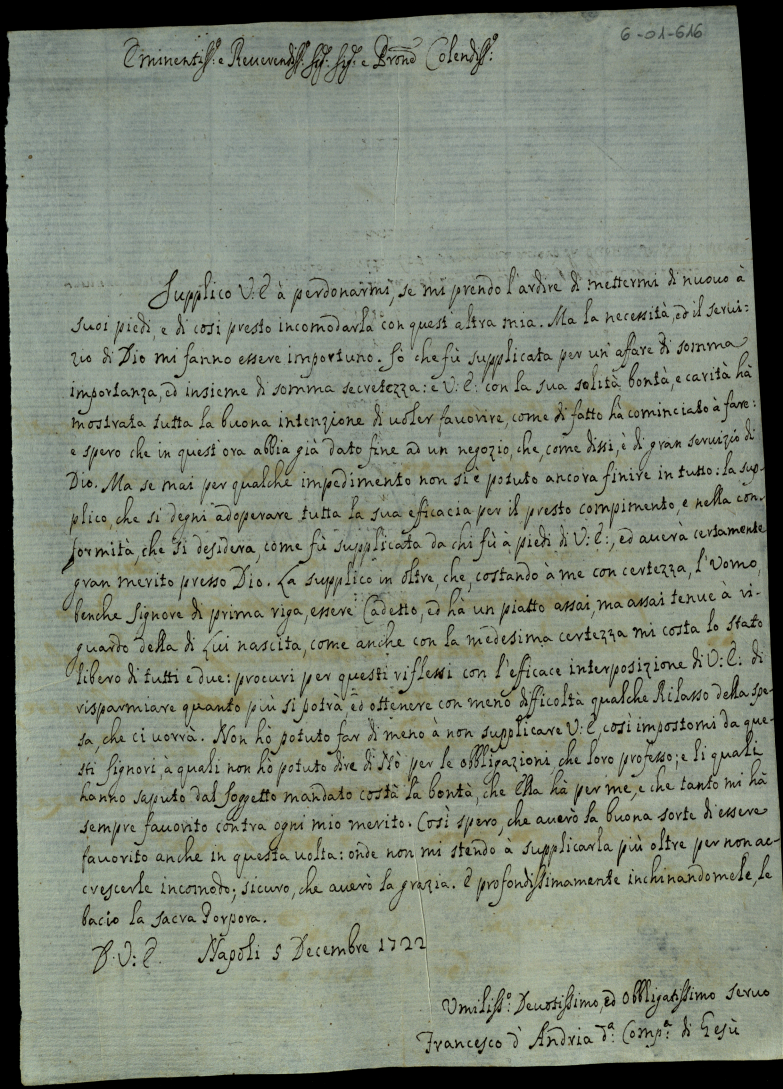 6-01-616
Eminentiss:º e Reuerendiss: Sig: Sig: e Pron̄e Colendiss:º
Supplico V:E à perdonarmi, se mi prendo l'ardire di mettermi di nuouo à
suoi piedi, e di così presto incomodarla con quest'altra mia. Ma la necessità, ed il serui:
zio di Dio mi fanno essere importuno. Sò che fù supplicata per un'affare di somma
importanza, ed insieme di somma secretezza: e V:E: con la sua solita bontà, e carità hà
mostrata tutta la buona intenzione di uoler fauorire, come di fatto hà cominciato à fare:
e spero che in quest'ora abbia già dato fine ad un negozio, che, come dissi, è di gran seruizio di
Dio. Ma se mai per qualche impedimento non si è potuto ancora finire in tutto: la sup-
plico, che si degni adoperare tutta la sua efficacia per il presto compimento, e nella con-
formità, che si desidera, come fù supplicata da chi fù à piedi di V:E:, ed auerà certamente
gran merito presso Dio. La supplico in oltre, che, costando à me con certezza, l'Uomo,
benche Signore di prima riga, essere Cadetto, ed hà un piatto assai, ma assai tenue à ri-
guardo della di Lui nascita, come anche con la medesima certezza mi costa lo stato
libero di tutti e due: procuri per questi riflessi con l'efficace interposizione di V:E: di
risparmiare quanto più si potrà ed ottenere con meno difficoltà qualche Rilasso della spe-
sa, che ci uorrà. Non hò potuto far di meno à non supplicare V:E, così impostomi da que-
sti Signori, à quali non hò potuto dire di Nò per le obbligazioni che loro professo; e li quali
hanno saputo dal Soggetto mandato costà la bontà, che Ella hà per me, e che tanto mi hà
sempre fauorito contra ogni mio merito. Così spero, che auerò la buona sorte di essere
fauorito anche in questa uolta: onde non mi stendo à supplicarla più oltre per non ac-
crescerle incomodo; sicuro, che auerò la grazia. E profondissimamente inchinandomele, le
bacio la sacra Porpora.
D.V:E. Napoli 5 Decembre 1722
Umiliss:º Deuotissimo, ed Obbligatissimo seruo
Francesco d'Andria d:ª Comp:ª di Gesù